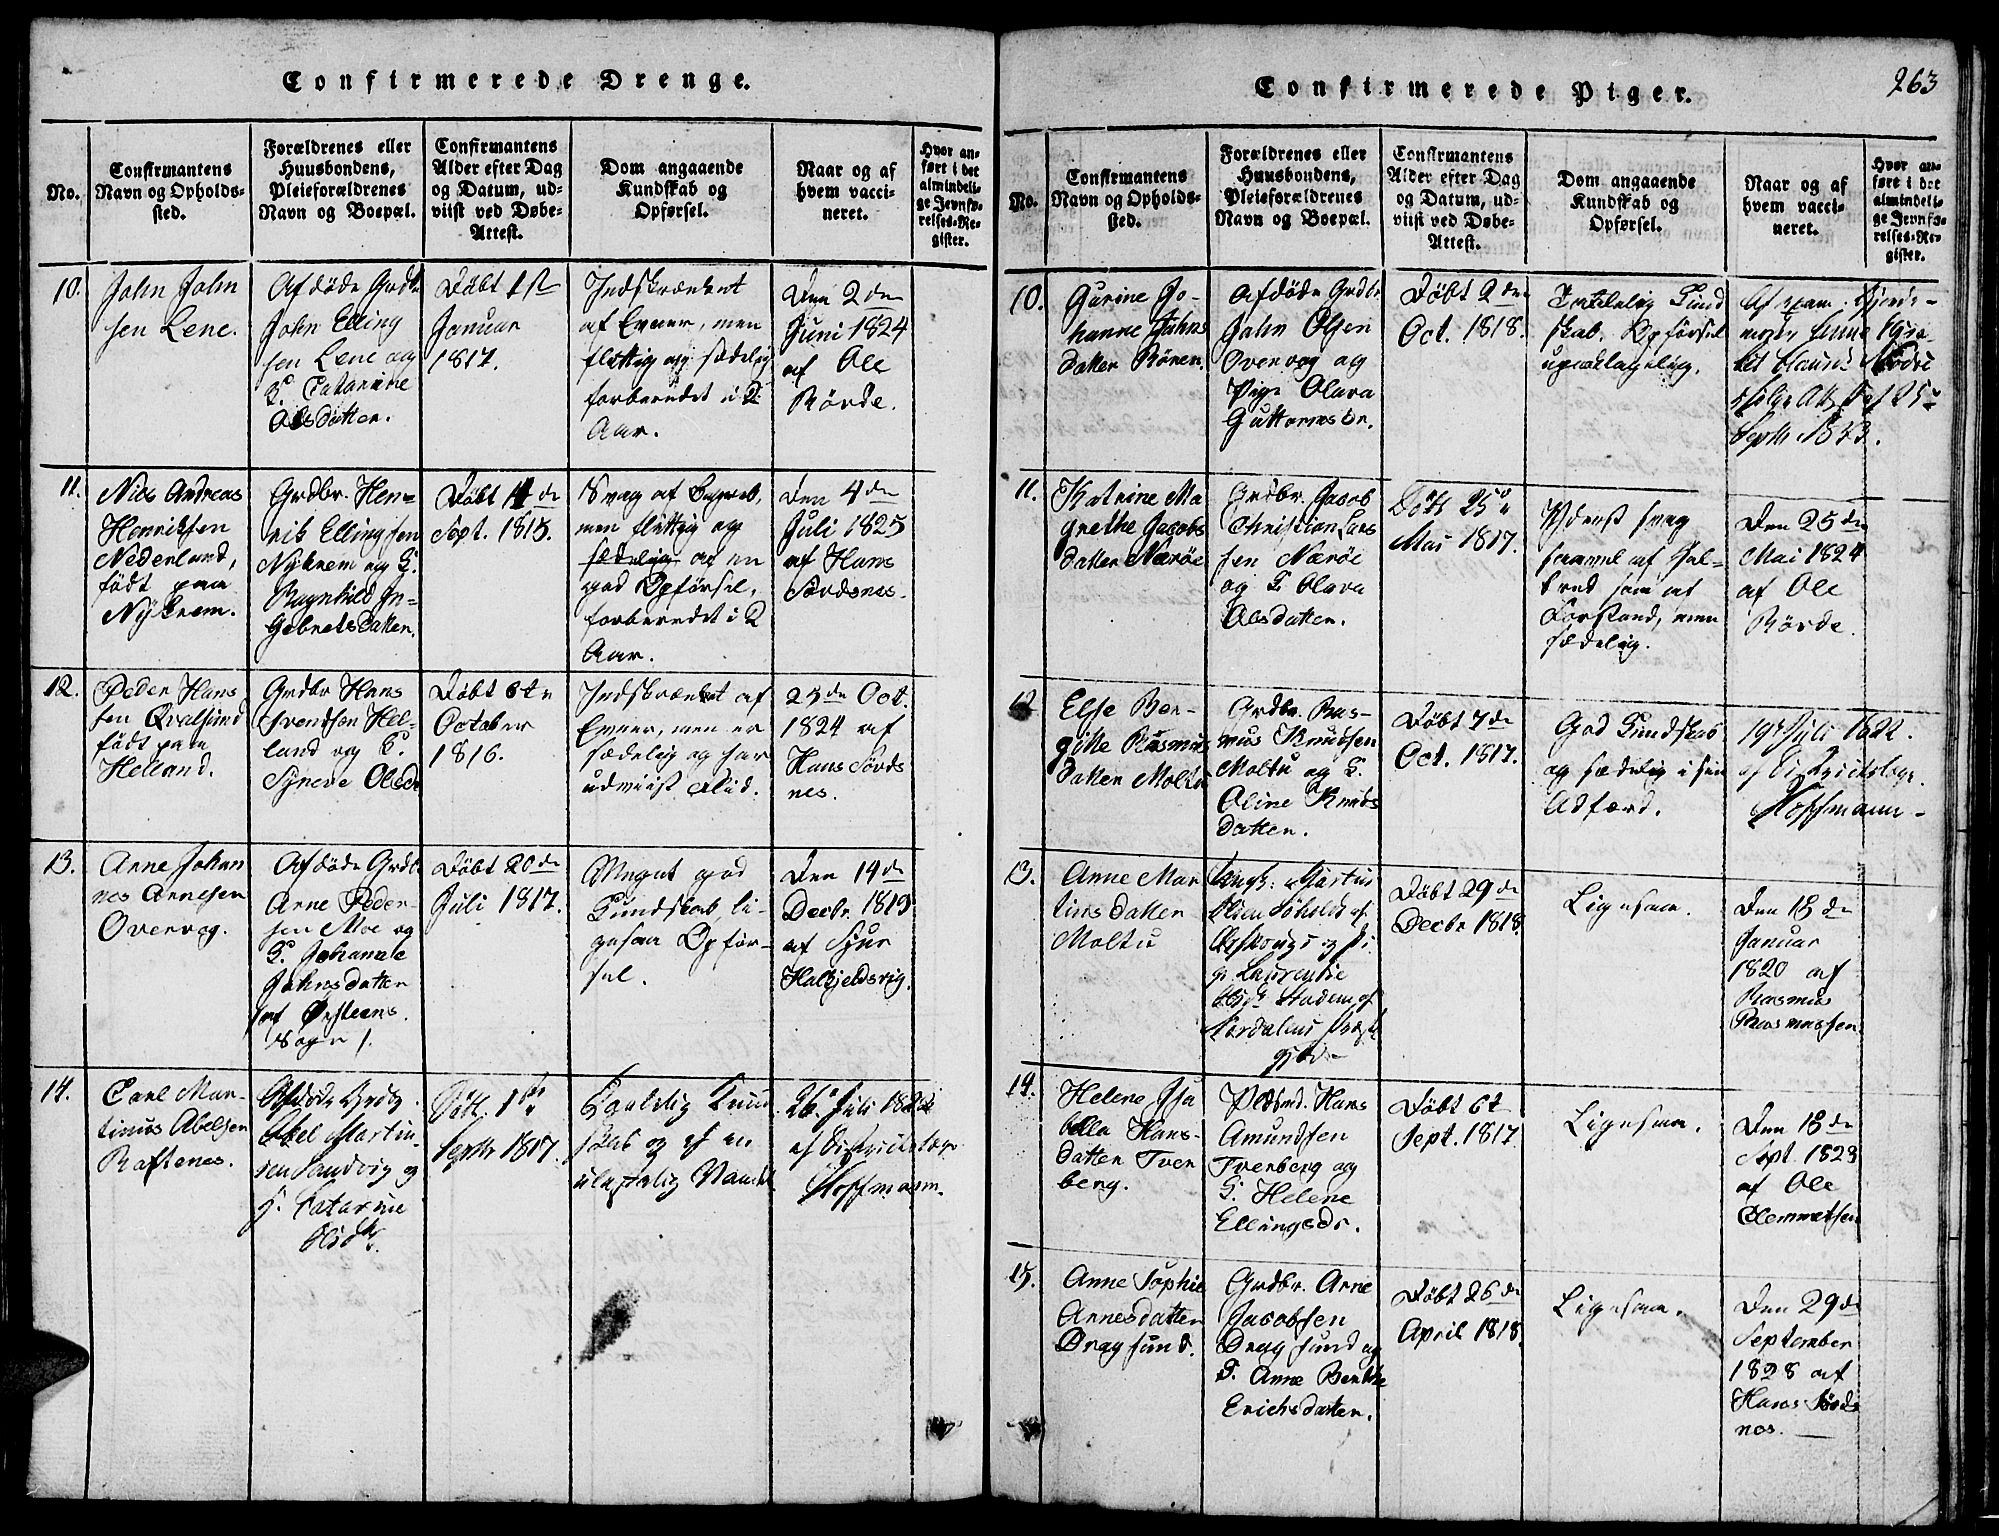 Confirmerede Drenge.
No.
Confirmantens
Navn og Opholds-
sted.
Forældrenes eller
Huusbondens,
Pleieforældrenes
Navn og Boepæl.
Confirmantens
Alder efter Dag
og Datum, ud-
viist ved Døbe-
Attest.
Dom angaaende
Kundskab og
Opførsel.
Naar og af
hvem vacci-
neret.
Hvor an-
ført i det
almindeli-
ge Jevnfø-
relses-Re-
gister.
10.
John John
sen Lene.
Afdøde Grdbr
John Elling
sen Lene og
K. Catarine
Olsdatter.
Døbt 1st
Januar
1817.
Indskrænket
af Evner, men
flittig og sædelig
forberedet i 2
Aar.
Den 2den
Juni 1824
af Ole
Rörde.
11.
Niels Andreas
Henriksen
Nederland,
födt paa
Nÿkrem.
Grdbr. Hen-
rik Ellingsen
Nÿkrem og K.
Ragnhild In-
gebretsdatter.
Døbt 4de
Sept. 1815.
Svag af Begreb,
men flittig og
sædelig af en
god Opførsel,
forberedet i 2
Aar.
Den 4de
Juli 1825
af Hans
Sördsnes.
12.
Peder Hans
sen Qvalsund
födt paa
Helland.
Grdbr Hans
Svendsen Hel-
land og K.
Syneve Olsdr
Døbt 6te
October
1816.
Indskrænket af
Evner, men er
sædelig og har
udviist Flid.
25de Oct.
1824 af
Hans Sörds
nes.
13.
Arne Johan
nes Arnesen
Overvog.
Afdøde Grdbr
Arne Peder-
sen Moe og
K. Johanne
Johnsdatter
af Örsteens
Sogn /.
Døbt 20de
Juli 1817.
Meget god
Kundskab, li-
gesaa Opfør-
sel.
Den 14de
Decbr. 1819
af Sjur
Halkjeldsvig.
14.
Carl Mar-
tinus Abelsen
Raftenes.
Afdøde Grdbr.
Abel Martin-
sen Sandvig og
K. Catarine
Olsdtr.
Døbt 1ste
Septbr 1817.
Taalelig Kund
skab og af en
ulastelig Vandel
26. Juli 1822
af Districtslæge
Hoffmann.
Confirmerede Piger.
263
No.
Confirmantens
Navn og Opholds-
sted.
Forældrenes eller
Huusbondens,
Pleieforældrenes
Navn og Boepæl.
Confirmantens
Alder efter Dag
og Datum, ud-
viist ved Døbe-
Attest.
Dom angaaende
Kundskab og
Opførsel.
Naar og af
hvem vacci-
neret.
Hvor an-
ført i det
almindeli-
ge Jevnfø-
relses-Re-
gister.
10.
Gurine Jo-
hanne Johns
datter Rönen.
Afdøde Grdbr
John Olsen
Overvog og
Pige Olava
Guttormsdr.
Døbt 2den
Oct. 1818.
Taalelig Kund
skab. Opførsel
upaaklagelig.
Af
1833.
11.
Katrine Ma
grethe Jacobs
datter Nærøe
Grdbr. Jacob
Christian Lars
sen Nærøe
og K. Olava
Olsdatter.
Døbt 25de
Mai 1817.
Yderst svag
saavel af Hel-
bred som af
Forstand, men
sædelig.
Den 25de
Mai 1824
af Ole
Rörde.
12
Else Ber-
gitte Rasmus
datter Moltu
Grdbr. Ras-
mus Knudsen
Moltu og K.
Oline Knuds
datter.
Døbt 7de
Oct. 1817.
God Kundskab
og sædelig i sin
Adfærd.
19 Juli 1822.
af Districtslæge
Hoffmann.
13.
Anne Mar
tinsdatter
Moltu
Laurentie
Døbt 29de
Decbr 1818.
Ligesaa.
Den 18de
Januar
1820 af
Rasmus
Rasmussen
14.
Helene Isa
bella Hans-
datter Tven
berg.
Pladsmd. Hans
Amundsen
Tvenberg og
K. Helene
Ellingsdr.
Døbt 6t
Sept. 1817
Ligesaa.
Den 18de
Sept. 1823
af Ole
Clemmetsen
15.
Anne Sophie
Arnesdatter
Dragsund.
Grdbr. Arne
Jacobsen
Dragsund og
K. Anne Berthe
Erichsdatter.
Døbt 26de
April 1818
Ligesaa.
Den 29de
September
1828 af
Hans Sörds
nes.